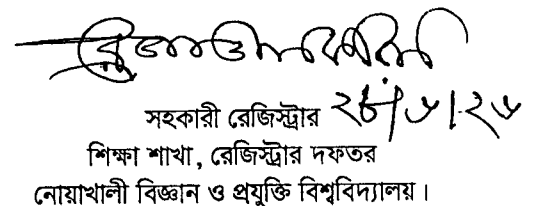 সহকারী রেজিস্ট্রার
শিক্ষা শাখা, রেজিস্ট্রার দফতর
নোয়াখালী বিজ্ঞান ও প্রযুক্তি বিশ্ববিদ্যালয়।